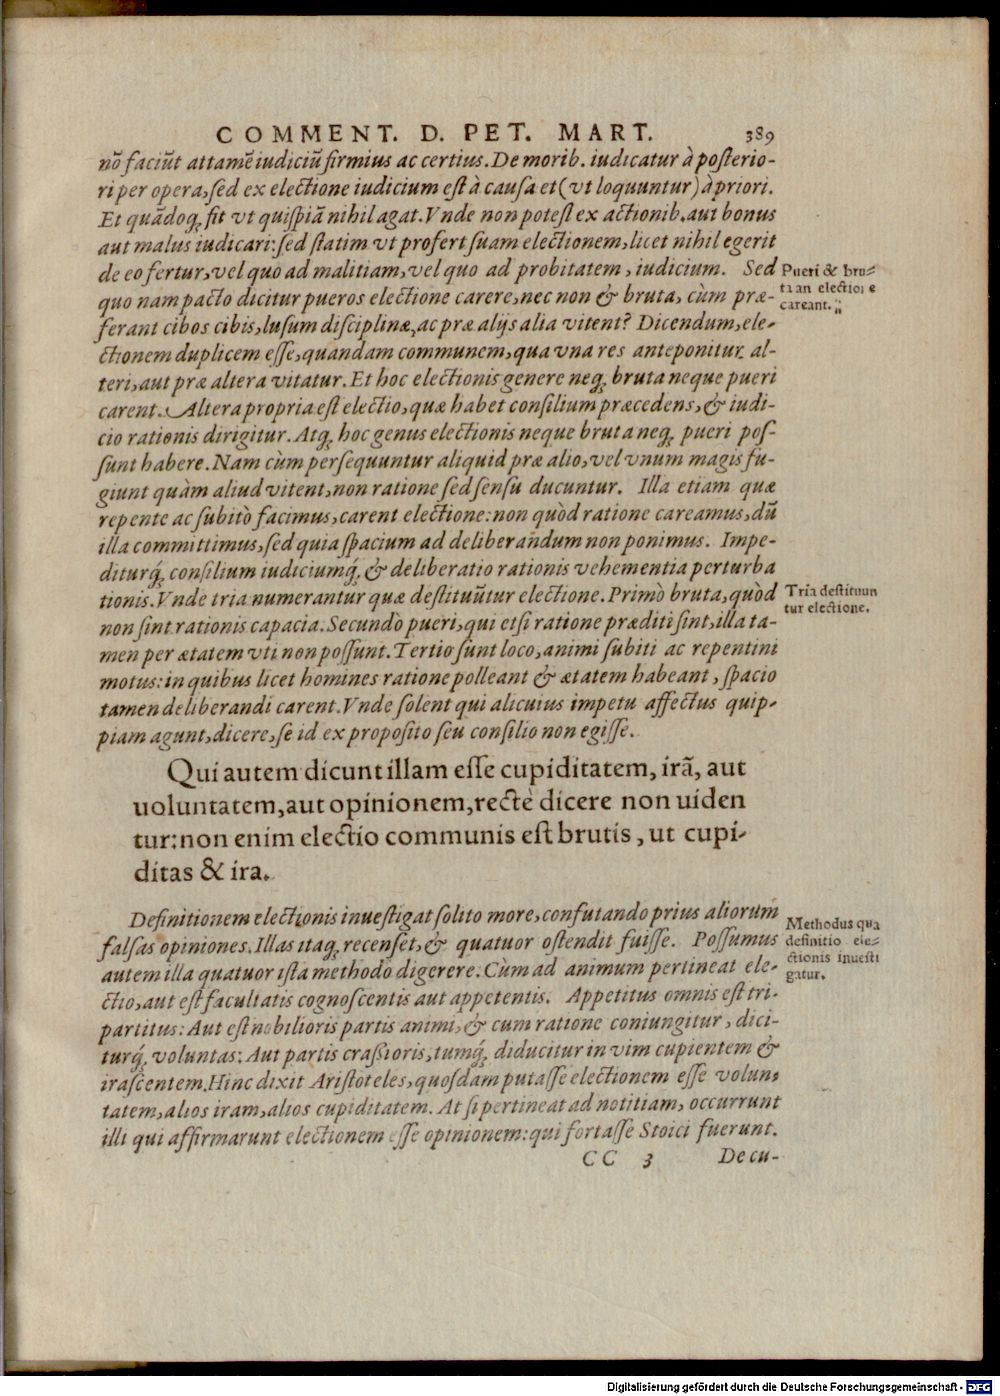 COMMENT. D. PET. MART. 389
nō faciūt attamē iudiciū firmius ac certius. De morib. iudicatur à posterio-
ri per opera, sed ex electione iudicium est à causa et (vt loquuntur) à priori.
Et quādoq; fit vt quispiā nihil agat. Vnde non potest ex actionib. aut bonus
aut malus iudicari: sed statim vt profert suam electionem, licet nihil egerit
de eo fertur, vel quo ad malitiam, vel quo ad probitatem, iudicium. Sed
quo nam pacto dicitur pueros electione carere, nec non & bruta, cùm præ-
ferant cibos cibis, lusum disciplinæ, ac præ alijs alia vitent? Dicendum, ele-
ctionem duplicem esse, quandam communem, qua vna res anteponitur al-
teri, aut præ altera vitatur. Et hoc electionis genere neq; bruta neque pueri
carent. Altera propria est electio, quæ habet consilium præcedens, & iudi-
cio rationis dirigitur. Atq; hoc genus electionis neque bruta neq; pueri pos-
sunt habere. Nam cùm persequuntur aliquid præ alio, vel vnum magis fu-
giunt quàm aliud vitent, non ratione sed sensu ducuntur. Illa etiam quæ
repente ac subitò facimus, carent electione: non quòd ratione careamus, dū
illa committimus, sed quia spacium ad deliberandum non ponimus. Impe-
diturq́; consilium iudiciumq́; & deliberatio rationis vehementia perturba
tionis. Vnde tria numerantur quæ destituūtur electione. Primò bruta, quòd
non sint rationis capacia: Secundò pueri, qui etsi ratione præditi sint, illa ta-
men per ætatem vti non possunt. Tertio sunt loco, animi subiti ac repentini
motus: in quibus licet homines ratione polleant & ætatem habeant, spacio
tamen deliberandi carent. Vnde solent qui alicuius impetu affectus quip-
piam agunt, dicere, se id ex proposito seu consilio non egisse.
Pueri & bru-
ta an electione
careant.
Tria destituun
tur electione.
Qui autem dicunt illam esse cupiditatem, irā, aut
uoluntatem, aut opinionem, rectè dicere non uiden
tur: non enim electio communis est brutis, ut cupi-
ditas & ira.
Definitionem electionis inuestigat solito more, confutando prius aliorum
falsas opiniones. Illas itaq; recenset, & quatuor ostendit fuisse. Possumus
autem illa quatuor ista methodo digerere. Cùm ad animum pertineat ele-
ctio, aut est facultatis cognoscentis aut appetentis. Appetitus omnis est tri-
partitus: Aut est nobilioris partis animi, & cum ratione coniungitur, dici-
turq́; voluntas: Aut partis crassioris, tumq́; diducitur in vim cupientem &
irascentem. Hinc dixit Aristoteles, quosdam putasse electionem esse volun-
tatem, alios iram, alios cupiditatem. At si pertineat ad notitiam, occurrunt
illi qui affirmarunt electionem esse opinionem: qui fortasse Stoici fuerunt.
Methodus qua
definitio ele-
ctionis inuesti
gatur.
CC 3 De cu-
Digitalisierung gefördert durch die Deutsche Forschungsgemeinschaft - DFG